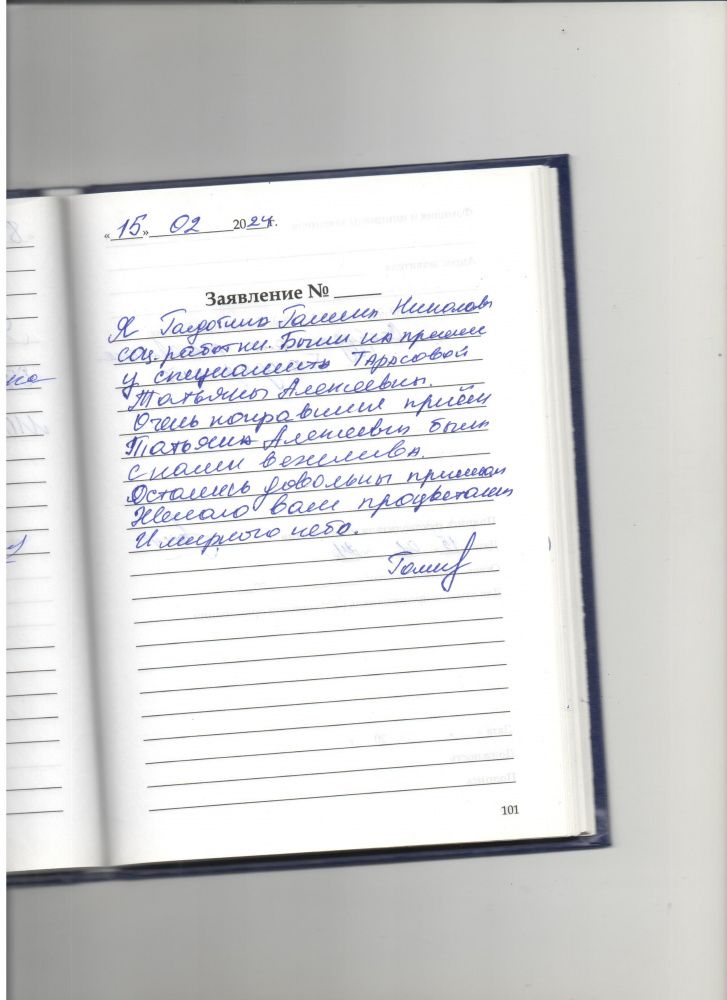 «15» 02 2024г.
Заявление №
Я Галина Николаевн
соц. работник. Были на приеме
у специалиста Тарасовой
Татьяны Алексеевны.
Очень понравился приём
Татьяна Алексеевна была
с нами вежлива.
Остались довольны приемом
Желаю вам процветания
И мирного неба.
101